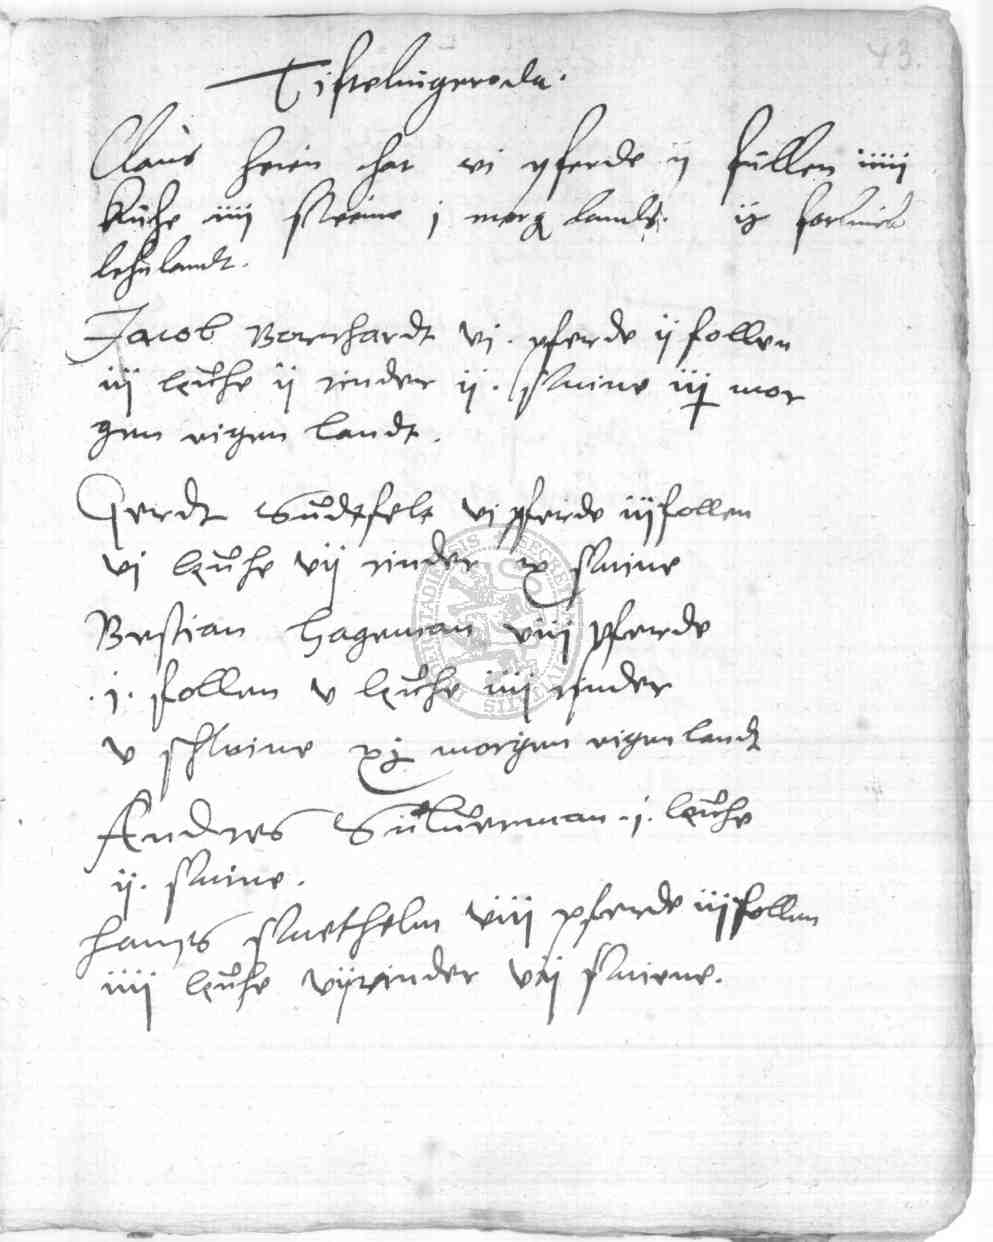 43.
Tistelingeroda.
Claus heien hat vi pferde ij füllen iiiij
Kuhe iiij schweine j morg landes. ij
lehnlandt.
Jacob Bornhardt vj. pferde ij follen
iij kuhe ij rinder ij. swine iij mor
gen eigen landt.
Gerdt vj pferde iij follen
vj kuhe vij rinder x swine
Bestian Hageman viij pferde
.j. follen v kuhe iiij rinder
v schweine xj morgen eigen landt
Andres Süluerman .j. kuhe
ij. swine.
Hans swethelm viij pferde iij follen
iiij kuhe vij rinder vij swiene.